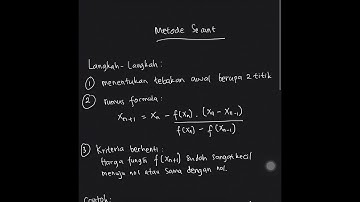 Metode Secant
Langkah-Langkah:
① menentukan tebakan awal berupa 2 titik
② Rumus formula:
x_{n+1} = x_n - f(x_n) . (x_n - x_{n-1}) / f(x_n) - f(x_{n-1})
③ Kriteria berhenti:
Harga fungsi f(x_{n+1}) sudah sangat kecil
menuju nol atau sama dengan nol.
Contoh: